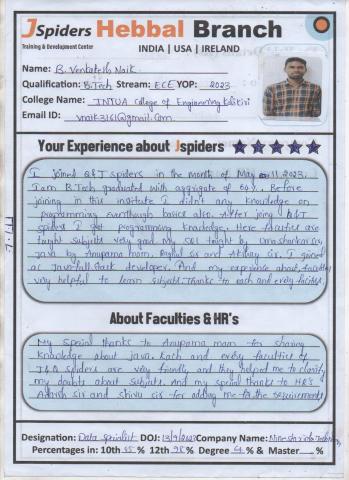 JSpiders Hebbal Branch
Training & Development Center
INDIA | USA | IRELAND
Name: B. Venkatesh Naik
Qualification: B.Tech Stream: ECE YOP: 2023
College Name: JNTUA College of Engineering Kalikiri
Email ID: vnaik3161@gmail.com
Your Experience about Jspiders
I joined Q&J spiders in the month of May 11 2023.
I am B.Tech graduated with aggregate of 64%. Before
joining in this institute I didn't any knowledge on
programming eventhough basics also. After joing Q&J
spiders I get programming knowledge. Here faculties are
taught subjects very good. My SQL taught by
Java by Anupama mam, and Akshay sir. I joined
as Java full stack developer. And my experience about faculties
very helpful to learn subjects. Thanks to each and every faculties.
About Faculties & HR's
My Special thanks to Anupama mam for sharing
knowledge about java. Each and every faculties of
J&Q spiders are very friendly, and they helped me to clarify
my doubts about subjects. And my special thanks to HR's
Adarsh sir and shivu sir for adding me to the requirements.
Designation: Data specialist DOJ: 13/9/2023 Company Name:
Percentages in: 10th % 12th 98 % Degree % & Master %